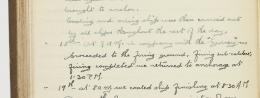 brought to anchor.
Coaling and oiling ship was then carried out
by all ships throughout the rest of the day.
- 18th - at 9 A.M. in company with the "
proceeded to the firing ground, firing sub-calibre,
firing completed we returned to anchorage at
8.30 P.M.
- 19th - at 8 AM we coaled ship finishing at 8.30 AM